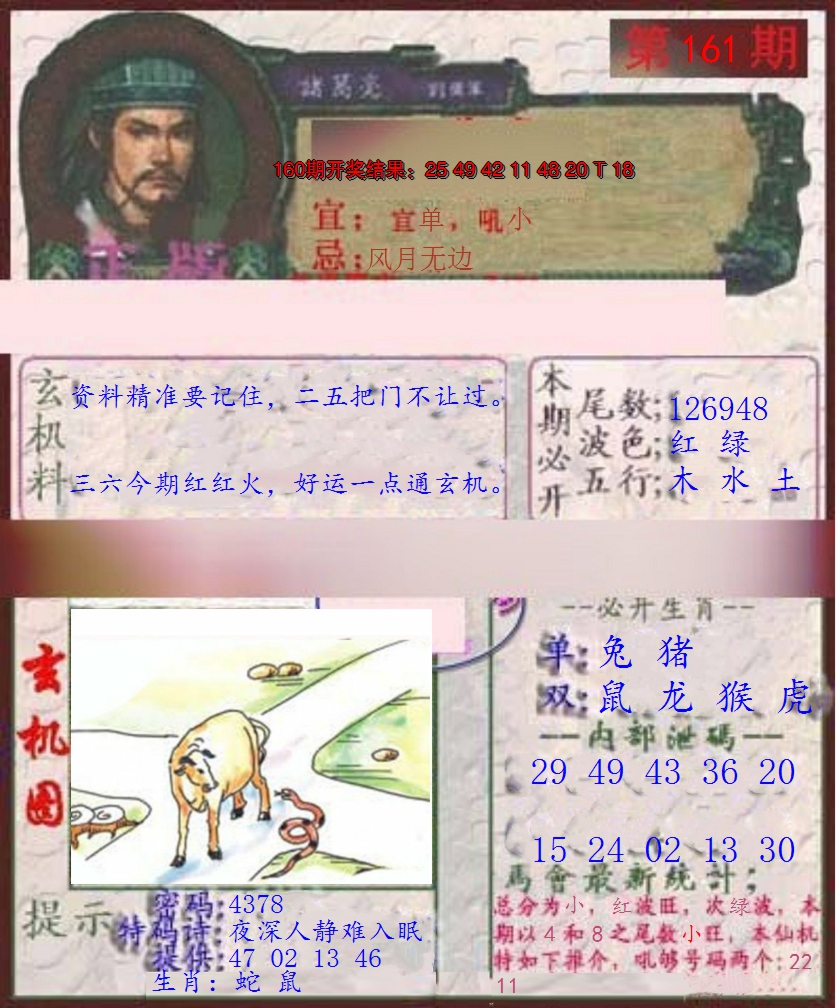 第 161 期
諸葛亮
160期开奖结果：25 49 42 11 48 20 T 18
宜：宜单，吼小
忌：风月无边
正版
玄机料
资料精准要记住，二五把门不让过。
三六今期红红火，好运一点通玄机。
本期必开
尾数；126948
波色；红 绿
五行；木 水 土
玄机图
--必开生肖--
单：兔 猪
双：鼠 龙 猴 虎
——内部泄碼——
29 49 43 36 20
15 24 02 13 30
馬會最新統計；
总分为小，红波旺，次绿波，本
期以4和8之尾数小旺，本仙机
特如下推介，吼够号码两个：22
11
提示
密码：4378
特码诗：夜深人静难入眠
提供：47 02 13 46
生肖：蛇 鼠